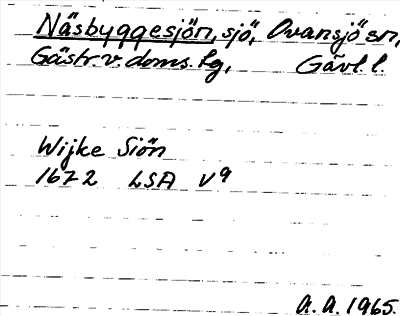 Näsbyggesjön, sjö, Ovansjö sn,
Gästr. v. doms. lg, Gävl. l.
Wijke Siön
1672 LSA V9
A. A. 1965.